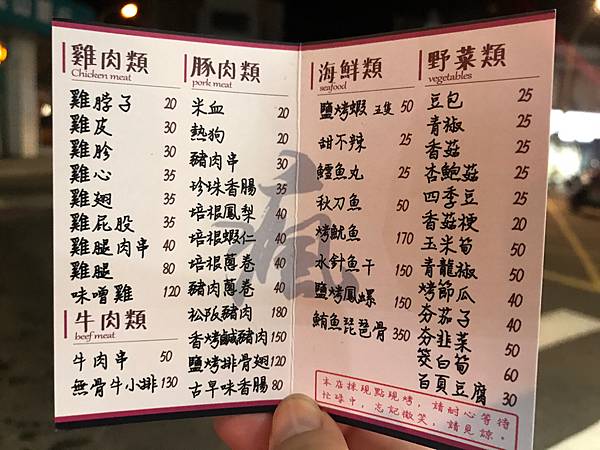 雞肉類
Chicken meat
雞脖子 20
雞皮 30
雞胗 30
雞心 35
雞翅 35
雞屁股 35
雞腿肉串 40
雞腿 80
味噌雞 120
牛肉類
beef meat
牛肉串 50
無骨牛小排 130
豚肉類
pork meat
米血 20
熱狗 20
豬肉串 35
珍珠香腸 35
培根鳳梨 40
培根蝦仁 40
培根蔥卷 40
豬肉蔥卷 40
松阪豬肉 180
香烤鹹豬肉 150
鹽烤排骨翅 120
古早味香腸 80
瘋
海鮮類
seafood
鹽烤蝦 五隻 50
甜不辣 25
鱈魚丸 25
秋刀魚 50
烤魷魚 170
水針魚干 150
鹽烤鳳螺 150
鮪魚琵琶骨 350
野菜類
vegetables
豆包 25
青椒 25
香菇 25
杏鮑菇 25
四季豆 25
香菇梗 20
玉米筍 25
青龍椒 25
烤節瓜 40
夯茄子 40
夯韭菜 50
筊白筍 60
百頁豆腐 30
本店採現點現烤，請耐心等待
忙碌中，忘記微笑，請見諒。